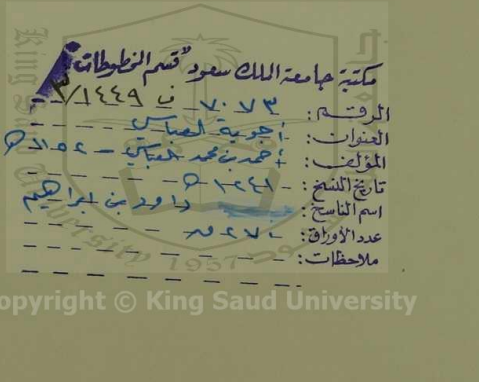 مكتبة جامعة الملك سعود "قسم المخطوطات"
الرقم: ٧٠٧٣ ف ٣/١٤٤٩
العنوان: أجوبة العباسي
المؤلف: أحمد بن محمد العباسي - ١١٥٢ هـ
تاريخ النسخ: - ١٢٤١ هـ
اسم الناسخ: داود بن ابراهيم
عدد الأوراق: ٢٧٠ ق
ملاحظات:
King Saud University
1957
Copyright © King Saud University